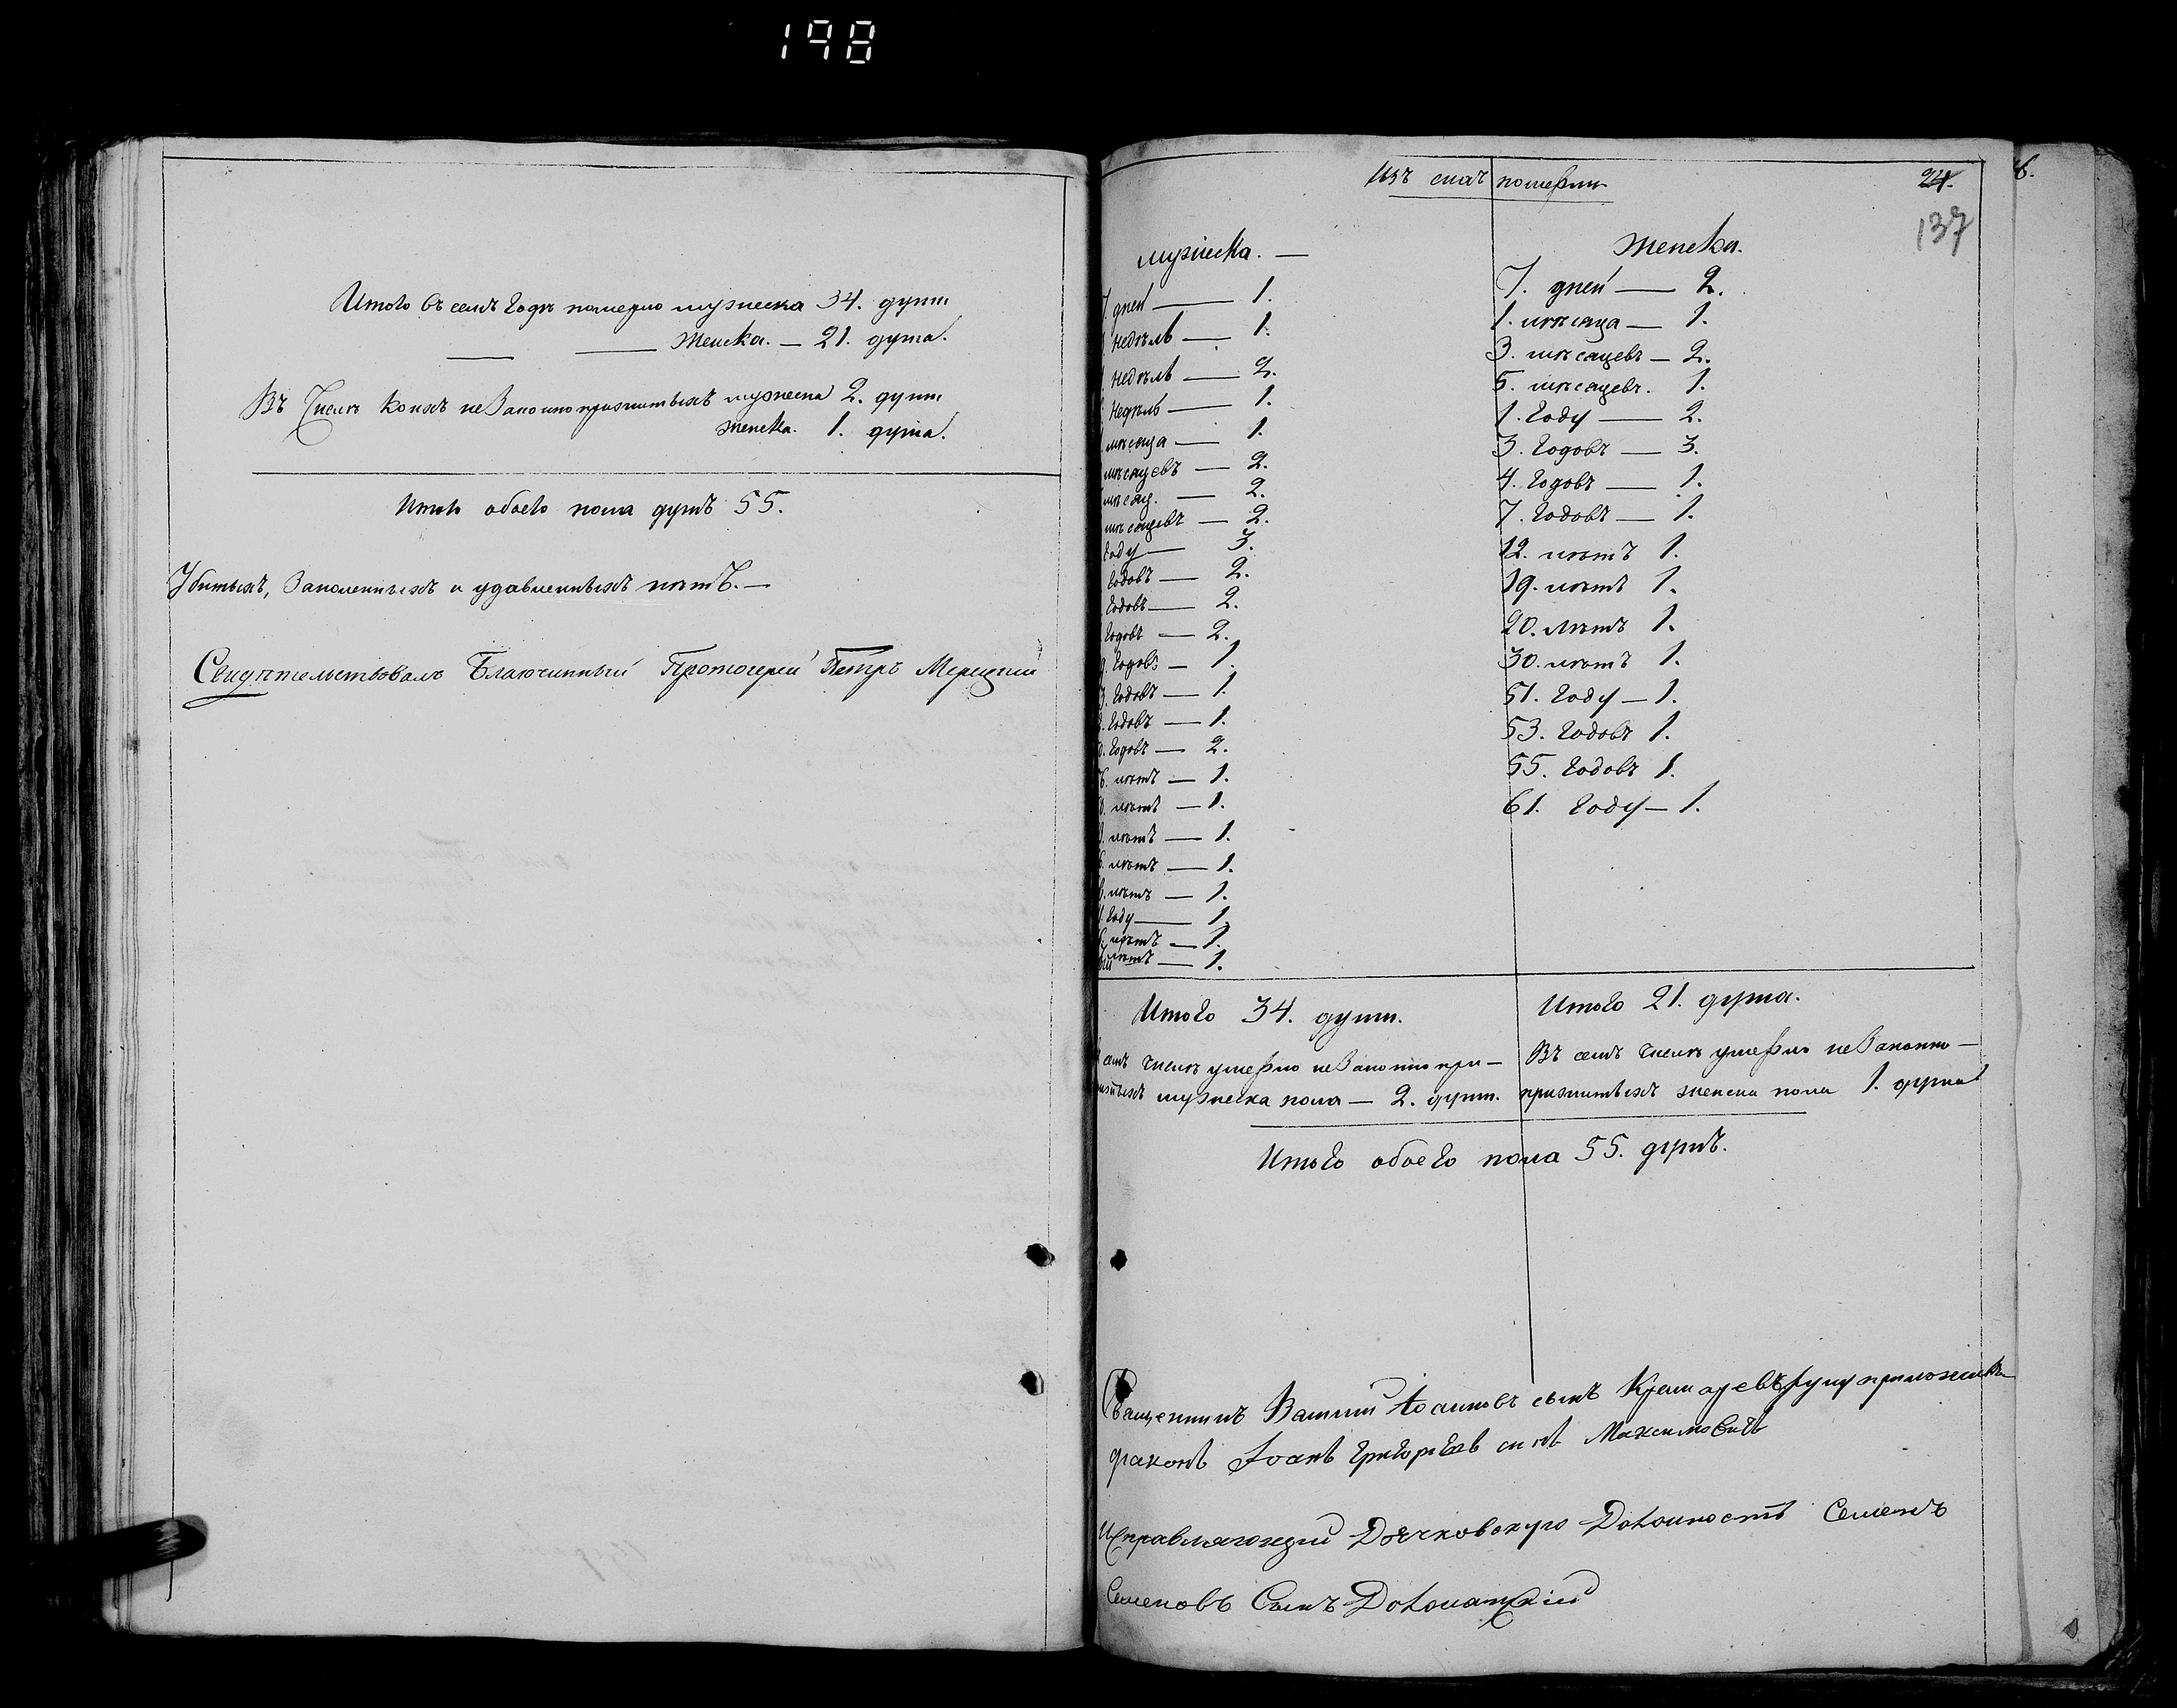 198
Итого въ семъ годѣ померло мужеска 34. души
женска. — 21. душа.
Въ числѣ коихъ незаконноприжитыхъ мужеска 2. души
женска. 1. душа.
Итого обоего пола душъ 55.
Убитыхъ, и удавленныхъ нѣтъ. —
Свидѣтельствовалъ Благочинный Протоіерей Петръ
Изъ сихъ померли
24.
6.
137
мужеска. —
дней — 1.
недѣль — 1.
недѣль — 2.
недѣль — 1.
мѣсяца — 1.
мѣсяцевъ — 2.
мѣсяц. — 2.
мѣсяцевъ — 2.
году — 3.
годовъ — 2.
годовъ — 2.
годовъ — 2.
годовъ — 1.
годовъ — 1.
годовъ — 1.
годовъ — 2.
лѣтъ — 1.
лѣтъ — 1.
лѣтъ — 1.
лѣтъ — 1.
лѣтъ — 1.
году — 1.
лѣтъ — 1.
лѣтъ — 1.
Женска.
7. дней — 2.
1. мѣсяца — 1.
3. мѣсяцевъ — 2.
5. мѣсяцевъ. 1.
1. году — 2.
3. годовъ — 3.
4. годовъ — 1.
7. годовъ — 1.
12. лѣтъ 1.
19. лѣтъ 1.
20. лѣтъ 1.
30. лѣтъ 1.
51. году — 1.
53. годовъ 1.
55. годовъ 1.
61. году — 1.
Итого 34. души.
семъ числѣ умерло незаконнопри-
мужеска пола — 2. души.
Итого 21. душа.
Въ семъ числѣ умерло незаконно-
прижитыхъ женска пола 1. душа
Итого обоего пола 55. душъ.
Священникъ Іоанновъ сынъ руку приложилъ
Іоанъ Григорьевъ Максимовичъ
Исправляющій Дьячковскую Должность Семенъ
Семеновъ Сынъ